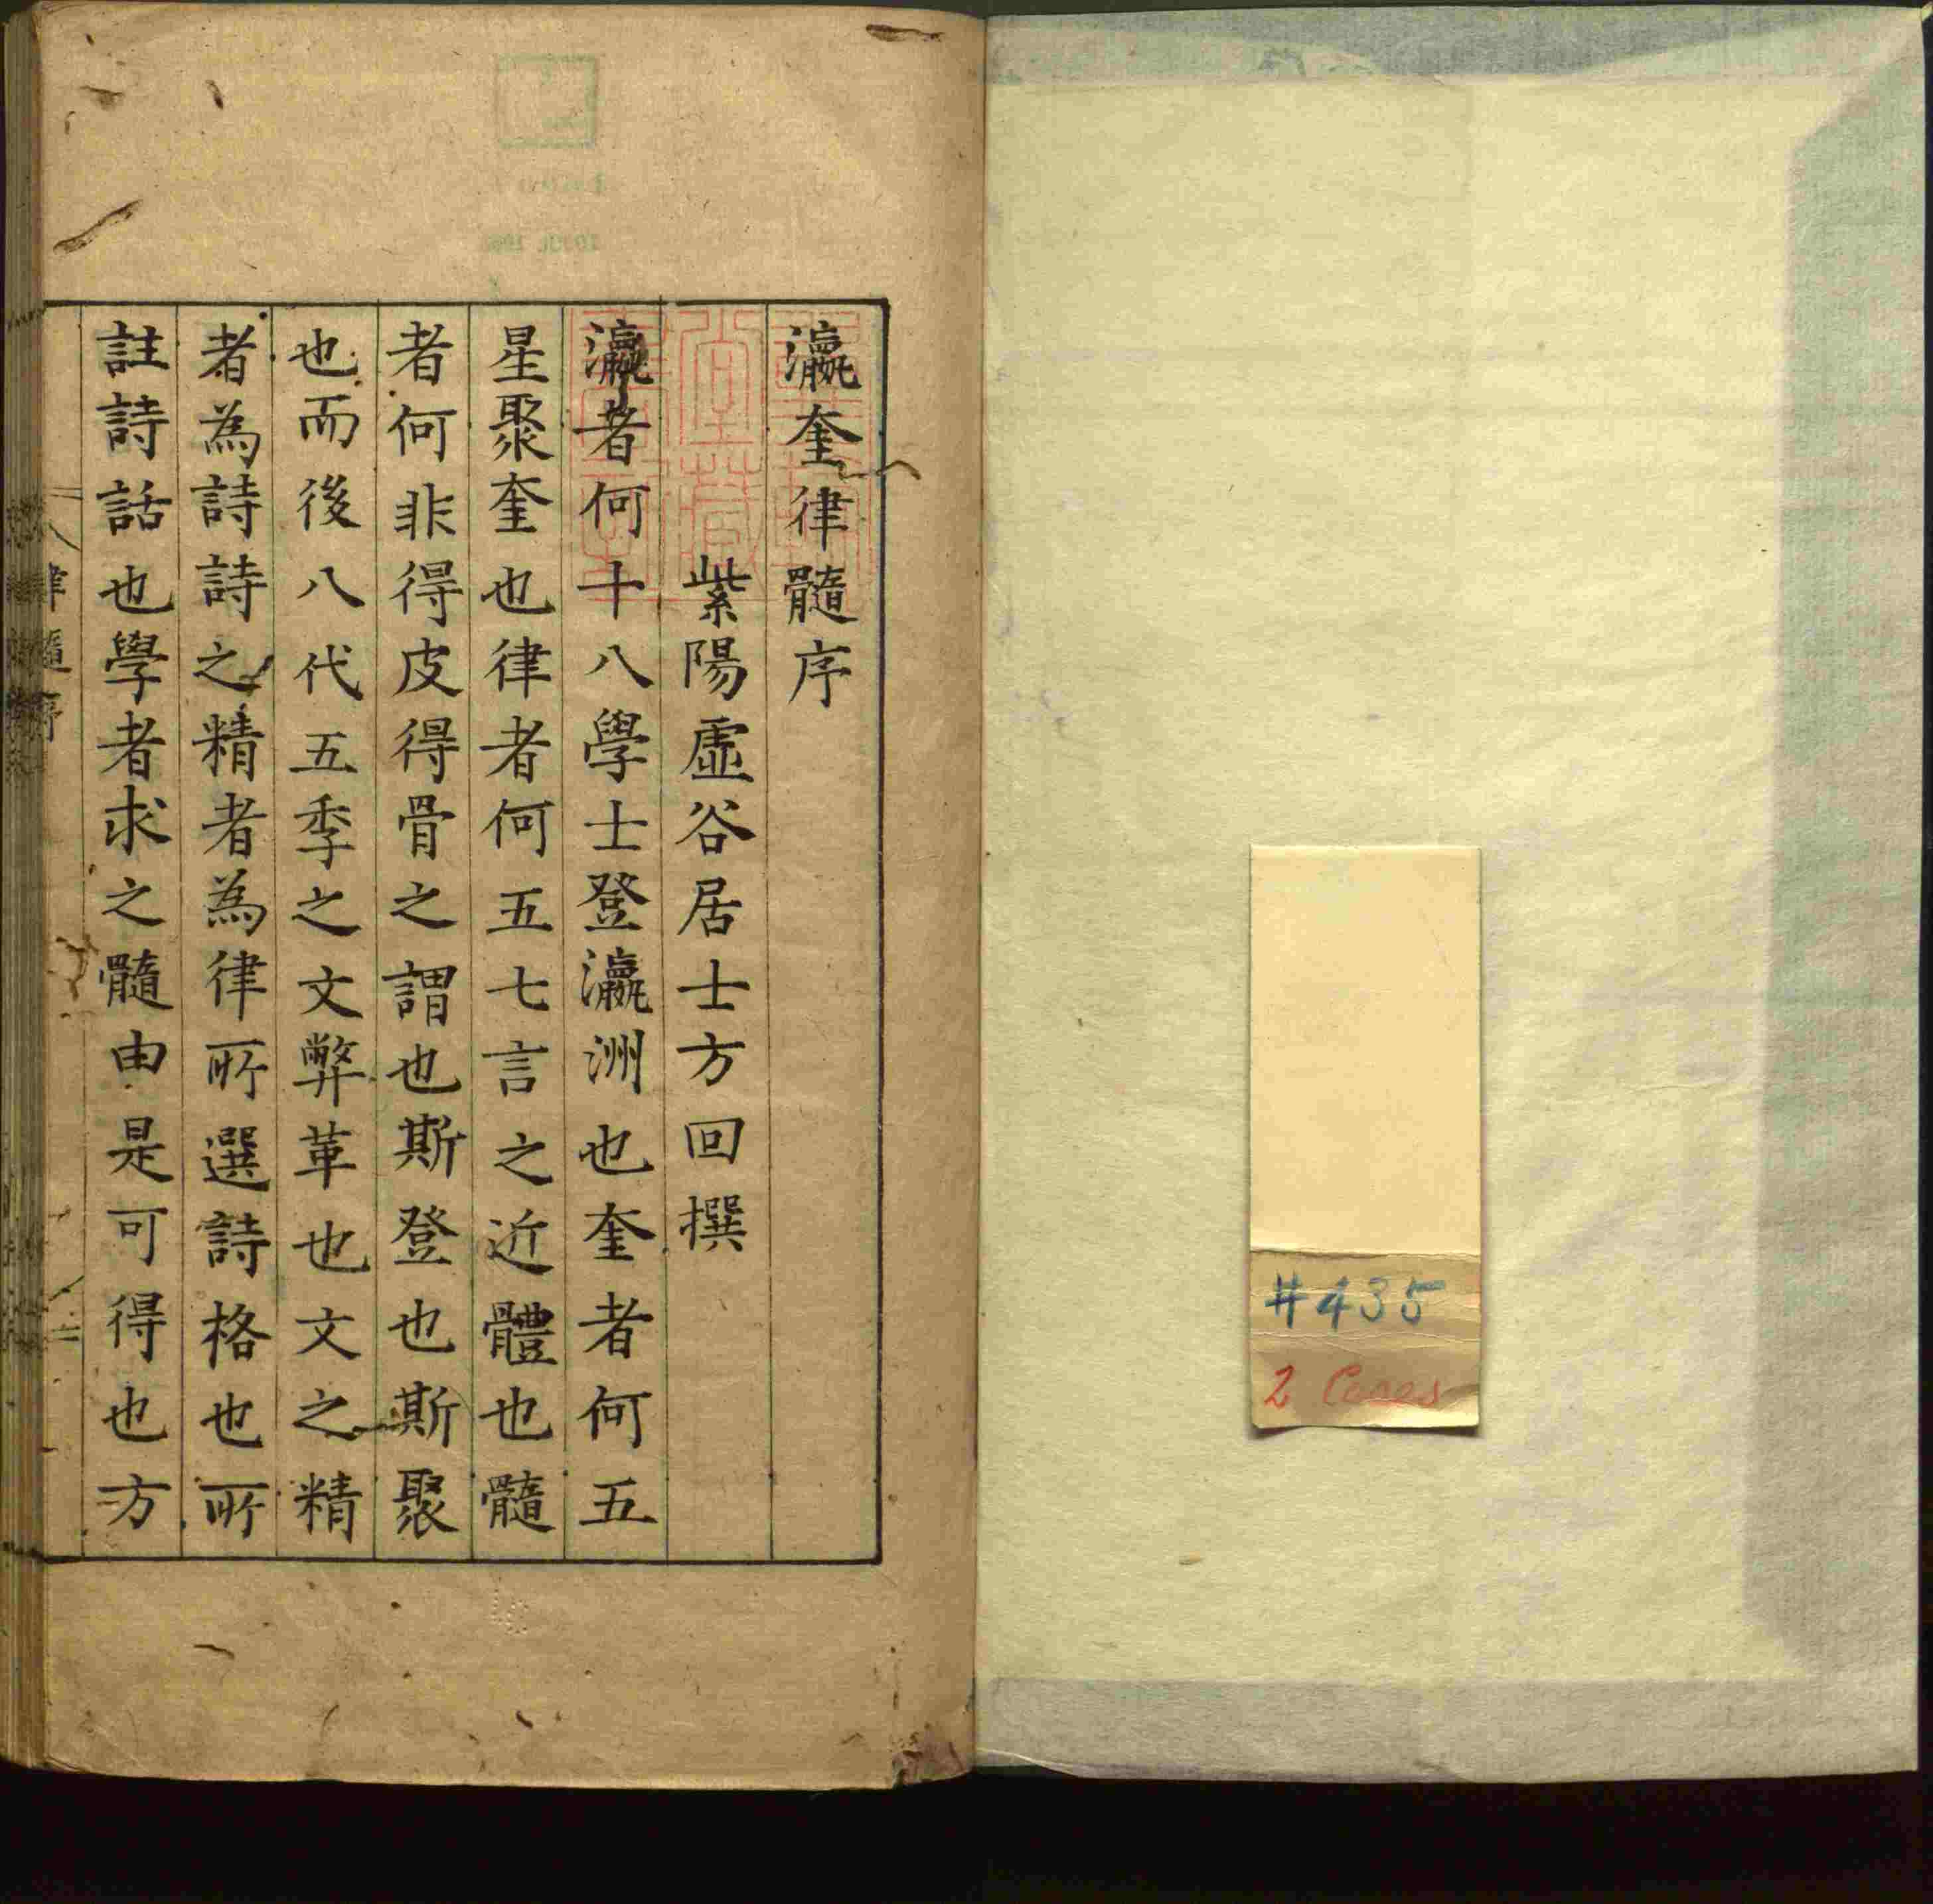 瀛奎律髓序
紫陽虛谷居士方回撰
瀛者何十八學士登瀛洲也奎者何五
星聚奎也律者何五七言之近體也髓
者何非得皮得骨之謂也斯登也斯聚
也而後八代五季之文弊革也文之精
者為詩詩之精者為律所選詩格也所
註詩話也學者求之髓由是可得也方
律髓序
#435
2 Cases